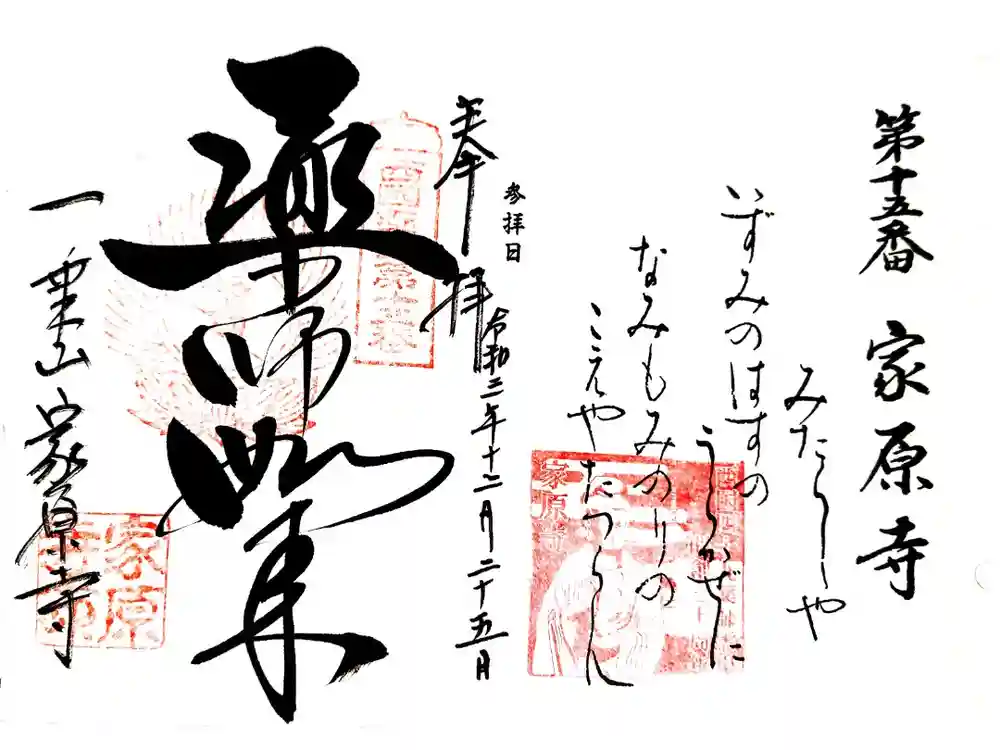 第十五番 家原寺
みたらしや
いずみのはすの
うらかぜに
なみもみのりの
こえやたつらん
参拝日
奉拝
令和三年十二月二十五日
薬師如来
一乗山 家原寺
家原寺